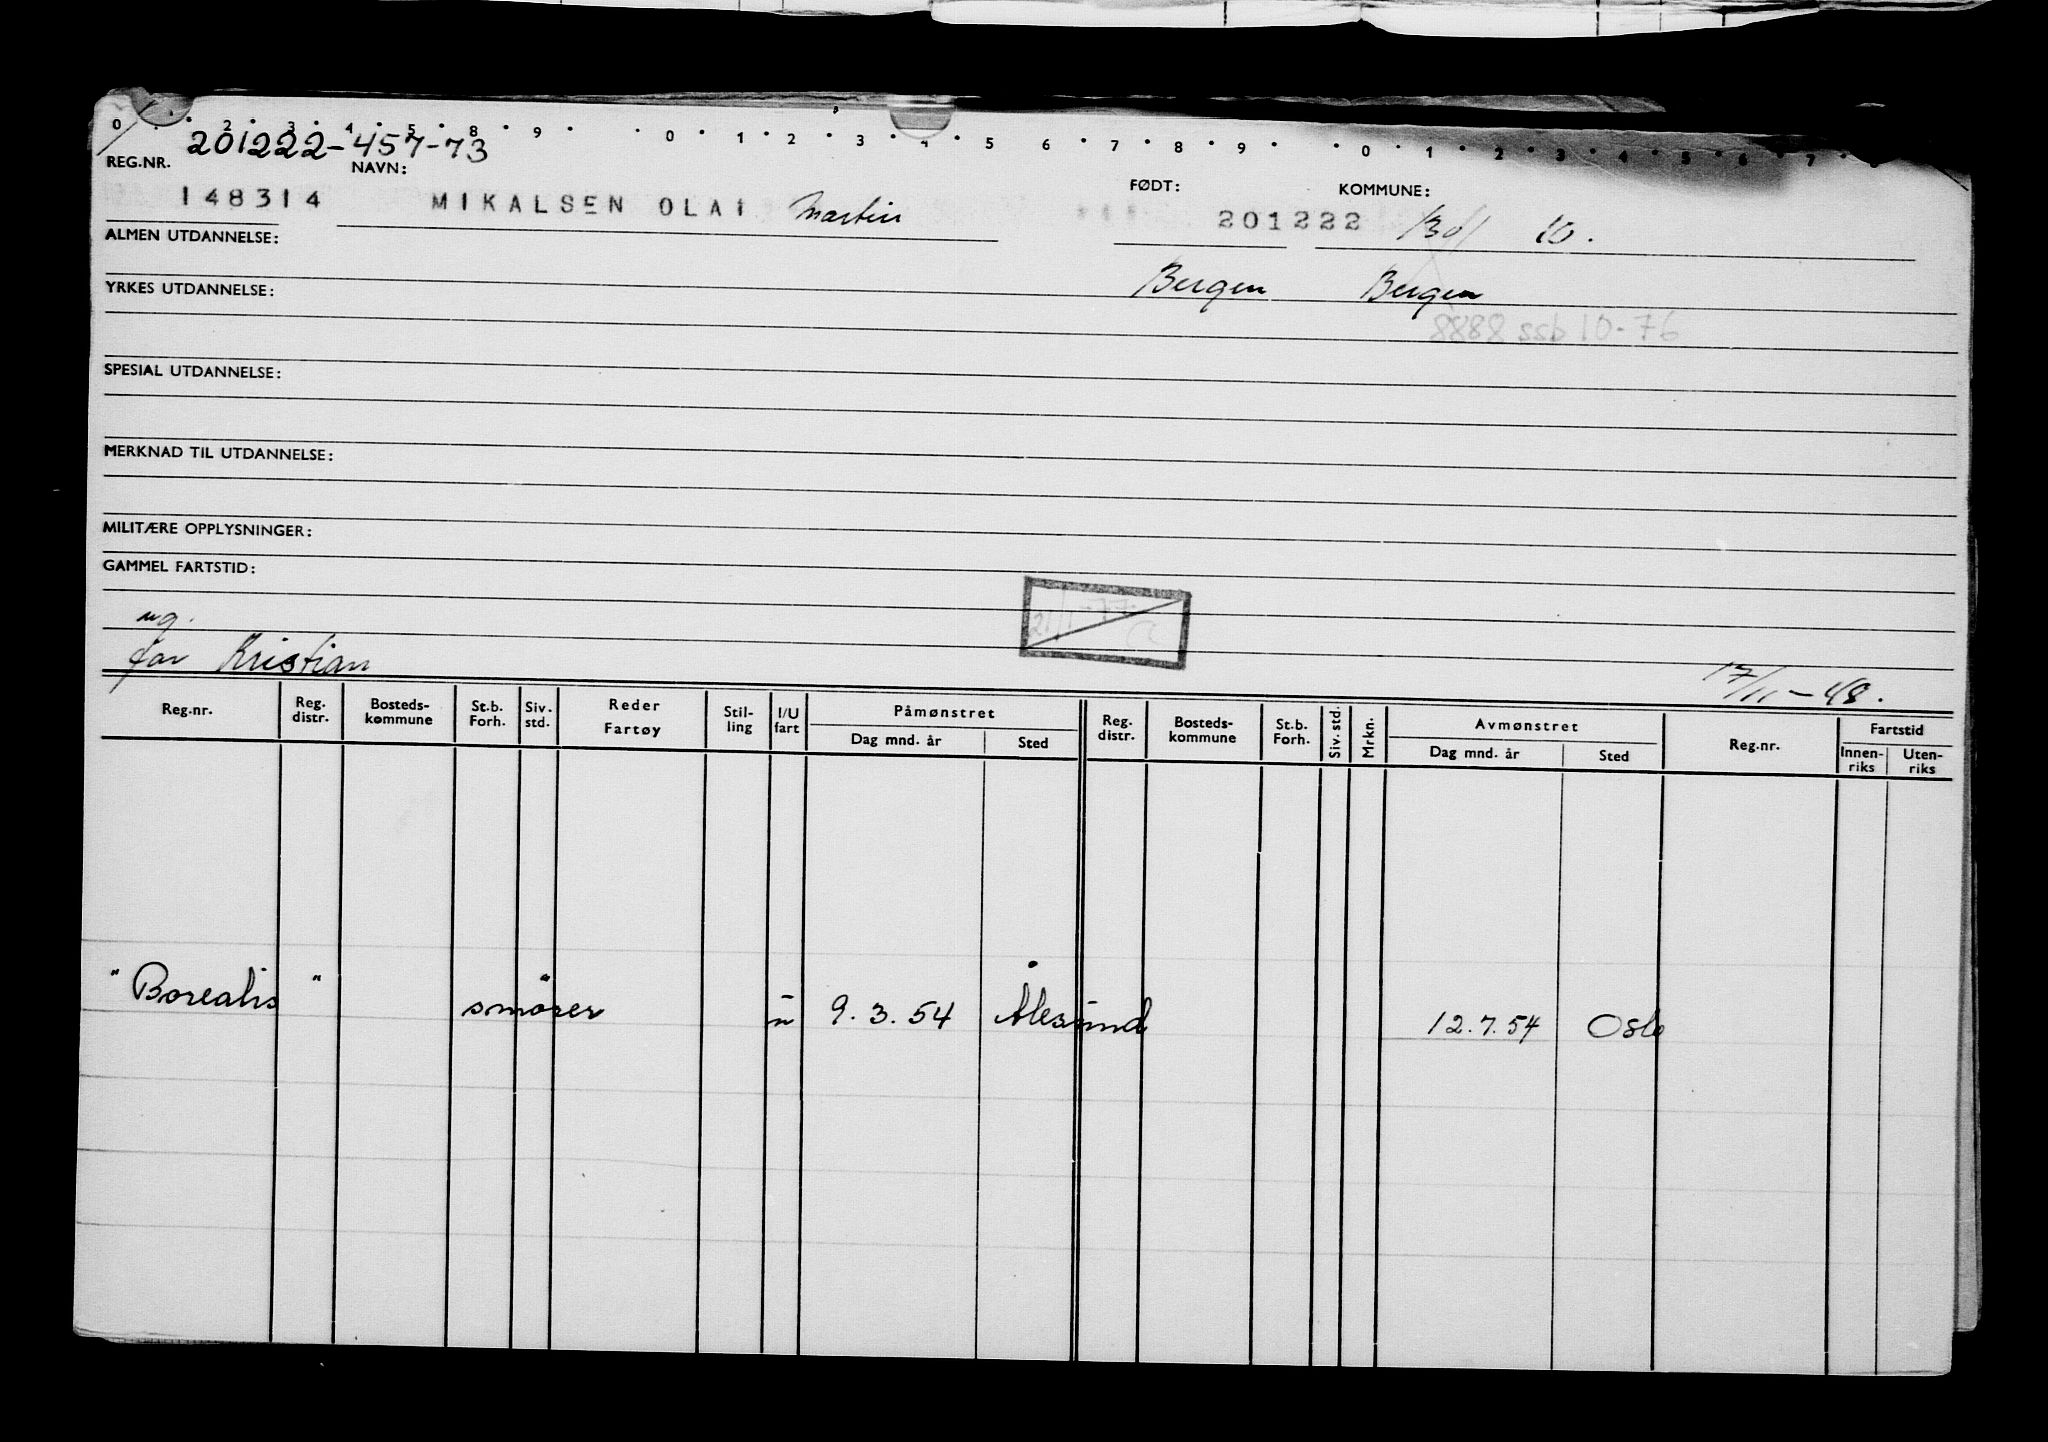 0 . . 2 . 3 . 4 . 5 . 8 . 9 . . 0 . 1 . 2 . 3 . 4 . 5 6 . 7 . 8 . 9 . . 0 . 1 . 2 . 3 . 4 . 5 . 6 . 7 .
201222-457-73
REG.NR. NAVN: FØDT: KOMMUNE:
148314 MIKALSEN OLAI Martin 201222 10.
ALMEN UTDANNELSE:
Bergen Bergen
YRKES UTDANNELSE:
8888 ssb 10-76
SPESIAL UTDANNELSE:
MERKNAD TIL UTDANNELSE:
MILITÆRE OPPLYSNINGER:
GAMMEL FARTSTID:
ug.
far Kristian
17/11-48.
Reg.nr. Reg. distr. Bosteds-kommune St.b. Forh. Siv. std. Reder Fartøy Stil-ling I/U fart Påmønstret Dag mnd. år Sted Reg. distr. Bosteds-kommune St.b. Forh. Siv. std. Mrkn. Avmønstret Dag mnd. år Sted Reg.nr. Fartstid Innen-riks Uten-riks
"Borealis" smører u 9.3.54 Ålesund 12.7.54 Oslo